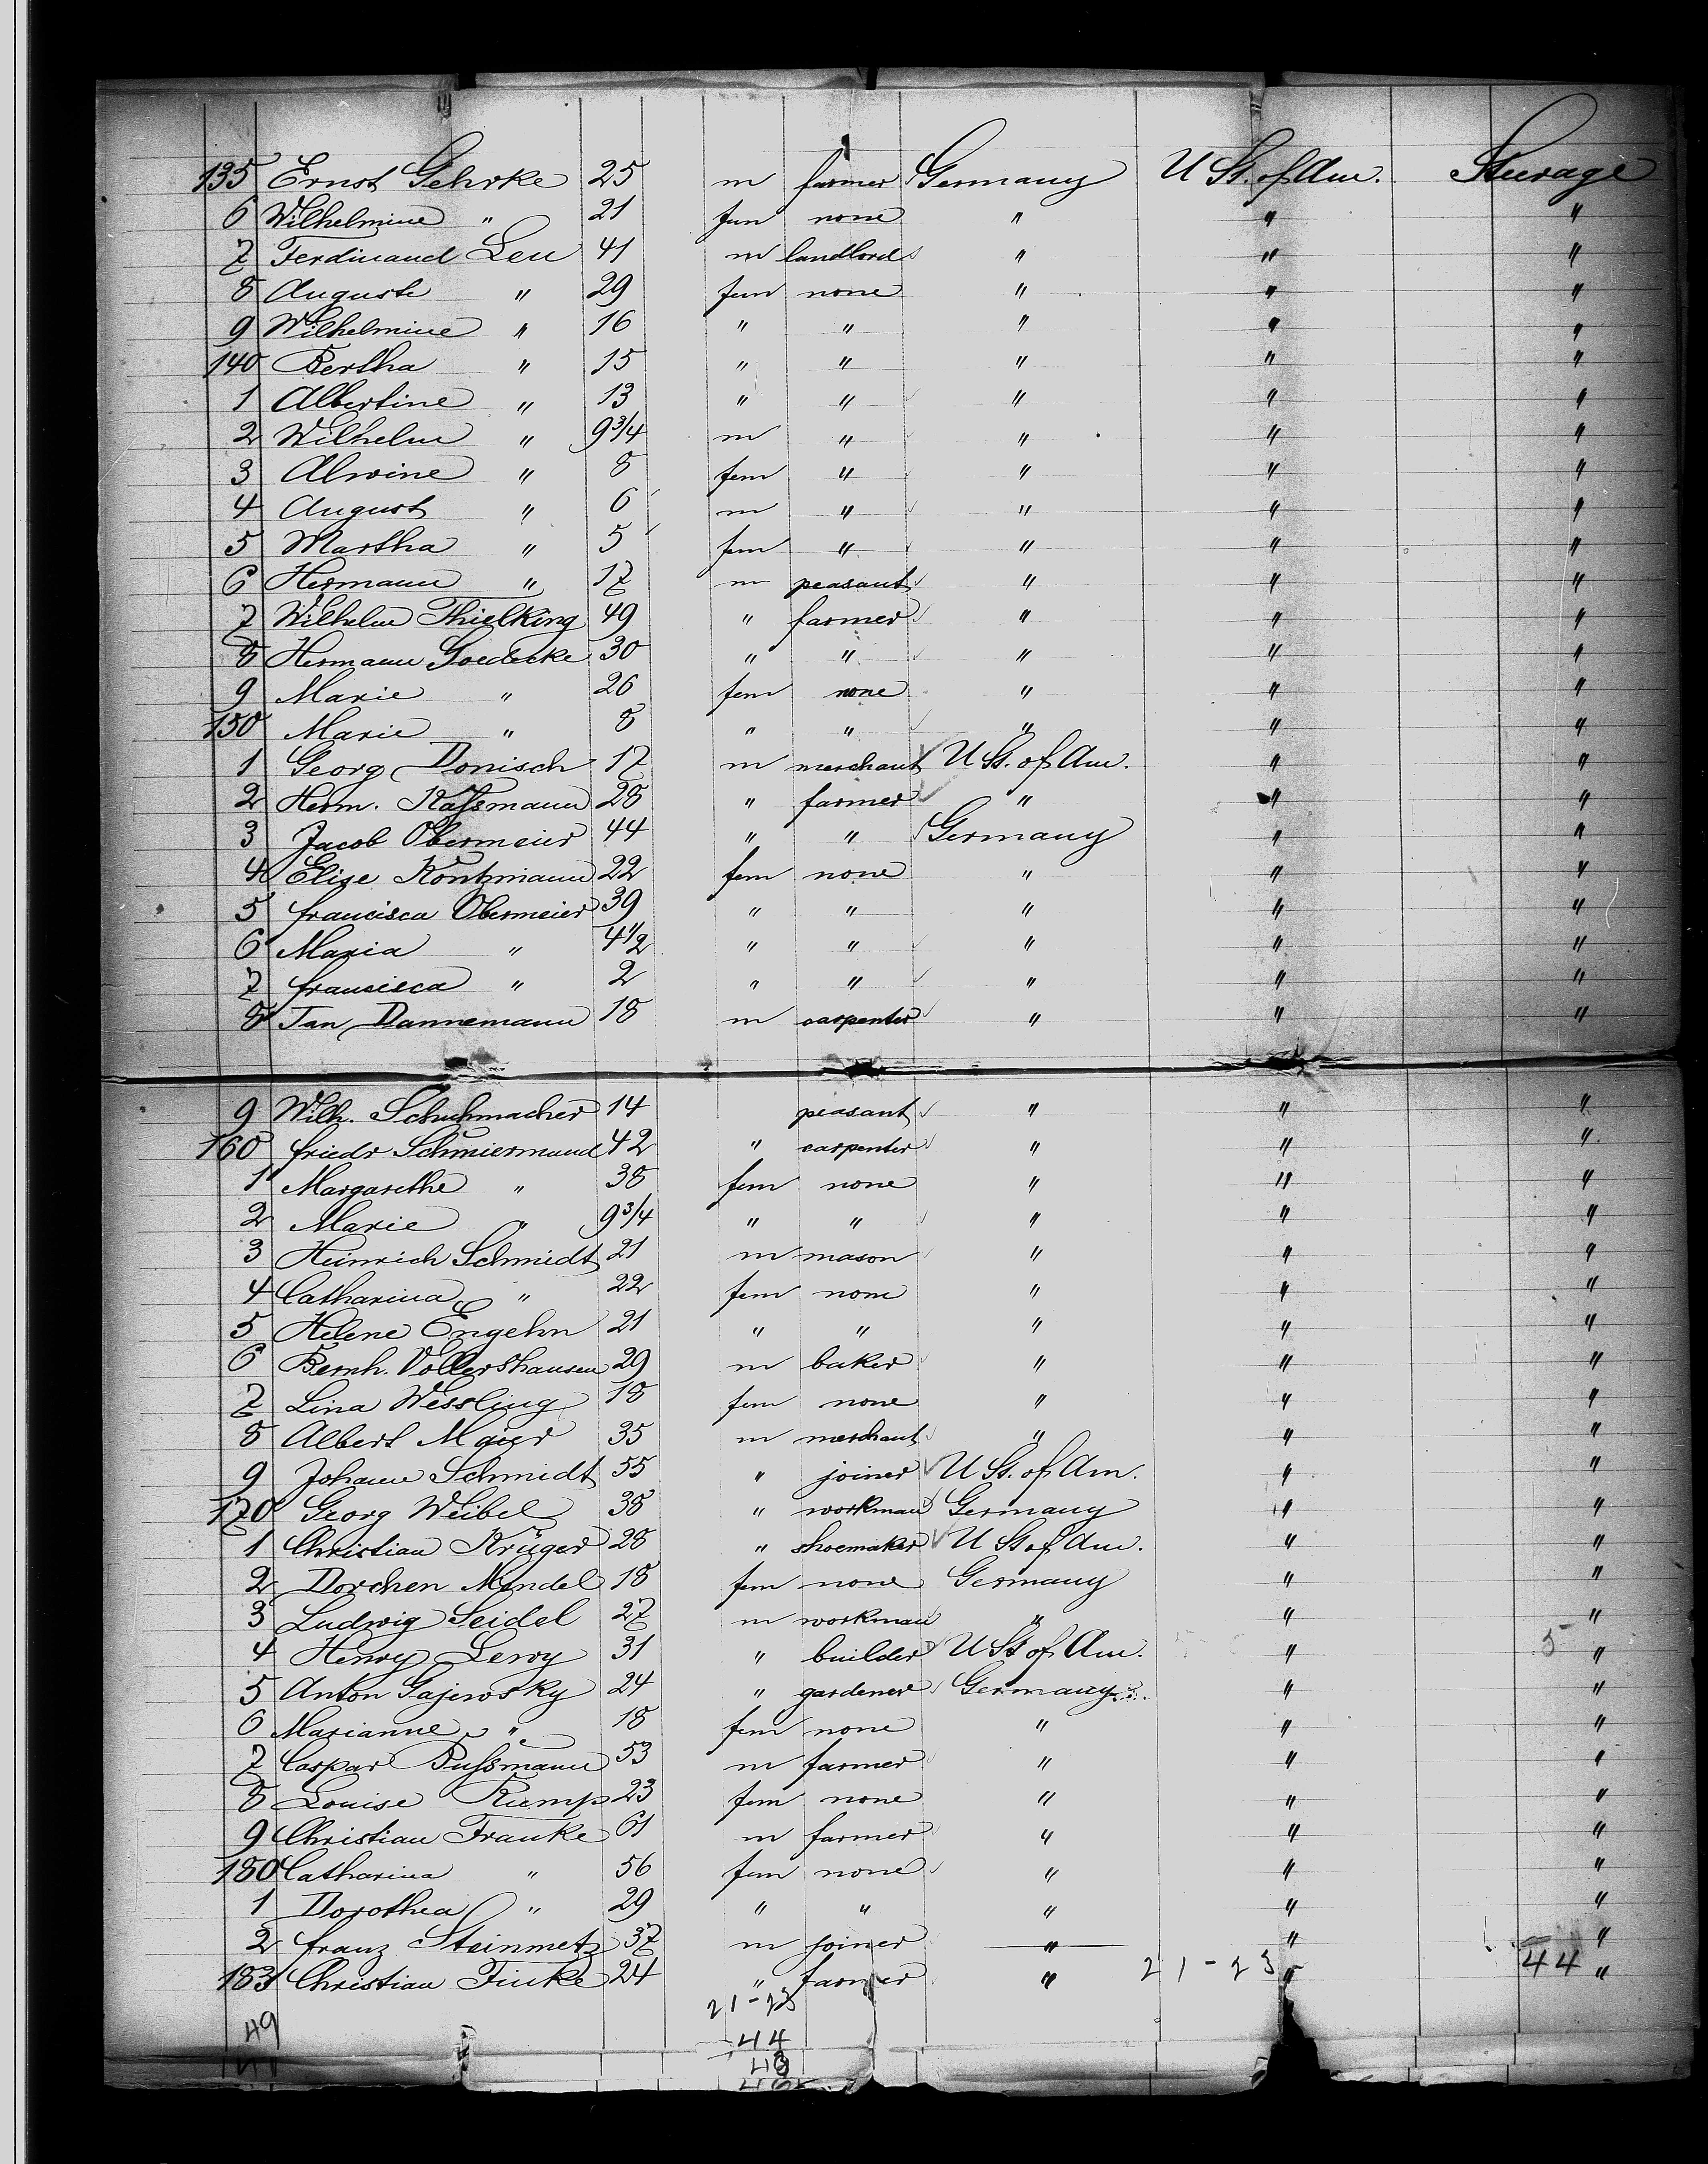 135 Ernst Gehrke 25 m farmer Germany U St. of Am. Steerage
6 Wilhelmine " 21 fem none " " "
7 Ferdinand Leu 41 m landlord " " "
8 Auguste " 29 fem none " " "
9 Wilhelmine " 16 " " " " "
140 Bertha " 15 " " " " "
1 Albertine " 13 " " " " "
2 Wilhelm " 9 3/4 m " " " "
3 Alwine " 8 fem " " " "
4 August " 6 m " " " "
5 Martha " 5 fem " " " "
6 Hermann " 17 m peasant " " "
7 Wilhelm Thielking 49 " farmer " " "
8 Hermann Goedecke 30 " " " " "
9 Marie " 26 fem none " " "
150 Marie " 8 " " " " "
1 Georg Donisch 17 m merchant U St. of Am. " "
2 Herm. Kaſsmann 28 " farmer " " "
3 Jacob Obermeier 44 " " Germany " "
4 Elise Kontzmann 22 fem none " " "
5 francisca Obermeier 39 " " " " "
6 Maria " 4 1/2 " " " " "
7 francisca " 2 " " " " "
8 Jan Dannemann 18 m carpenter " " "
9 Wilh. Schuhmacher 14 peasant " " "
160 friedr Schmiermund 42 " carpenter " " "
1 Margarethe " 38 fem none " " "
2 Marie " 9 3/4 " " " " "
3 Heinrich Schmidt 21 m mason " " "
4 Catharina " 22 fem none " " "
5 Helene Engehn 21 " " " " "
6 Bernh. Vollershausen 29 m baker " " "
7 Lina Wessling 18 fem none " " "
8 Albert Maier 35 m merchant " " "
9 Johann Schmidt 55 " joiner U St. of Am. " "
170 Georg Weibel 38 " workman Germany " "
1 Christian Krüger 28 " shoemaker U St of Am. " "
2 Dorchen Mendel 18 fem none Germany " "
3 Ludwig Seidel 27 m workman " " "
4 Henry Leroy 31 " builder U St of Am. " 5 "
5 Anton Gajewsky 24 " gardener Germany " "
6 Marianne " 18 fem none " " "
7 Caspar Buſsmann 53 m farmer " " "
8 Louise Kump 23 fem none " " "
9 Christian Franke 61 m farmer " " "
180 Catharina " 56 fem none " " "
1 Dorothea " 29 " " " " "
2 franz Steinmetz 37 m joiner " " "
183 Christian Finke 24 " farmer " 21-23 " 44 "
21-23
49 44